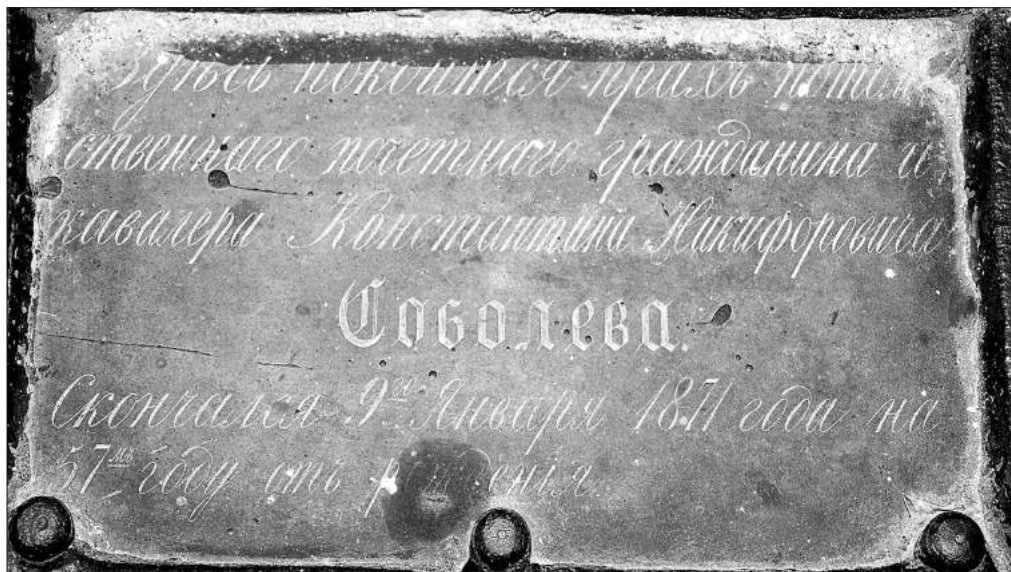 Здѣсь покоится прахъ потом
ственнаго почетнаго гражданина и
кавалера Константина Никифоровича
Соболева.
Скончался 9го Января 1871 года на
57мъ году отъ рожденія.